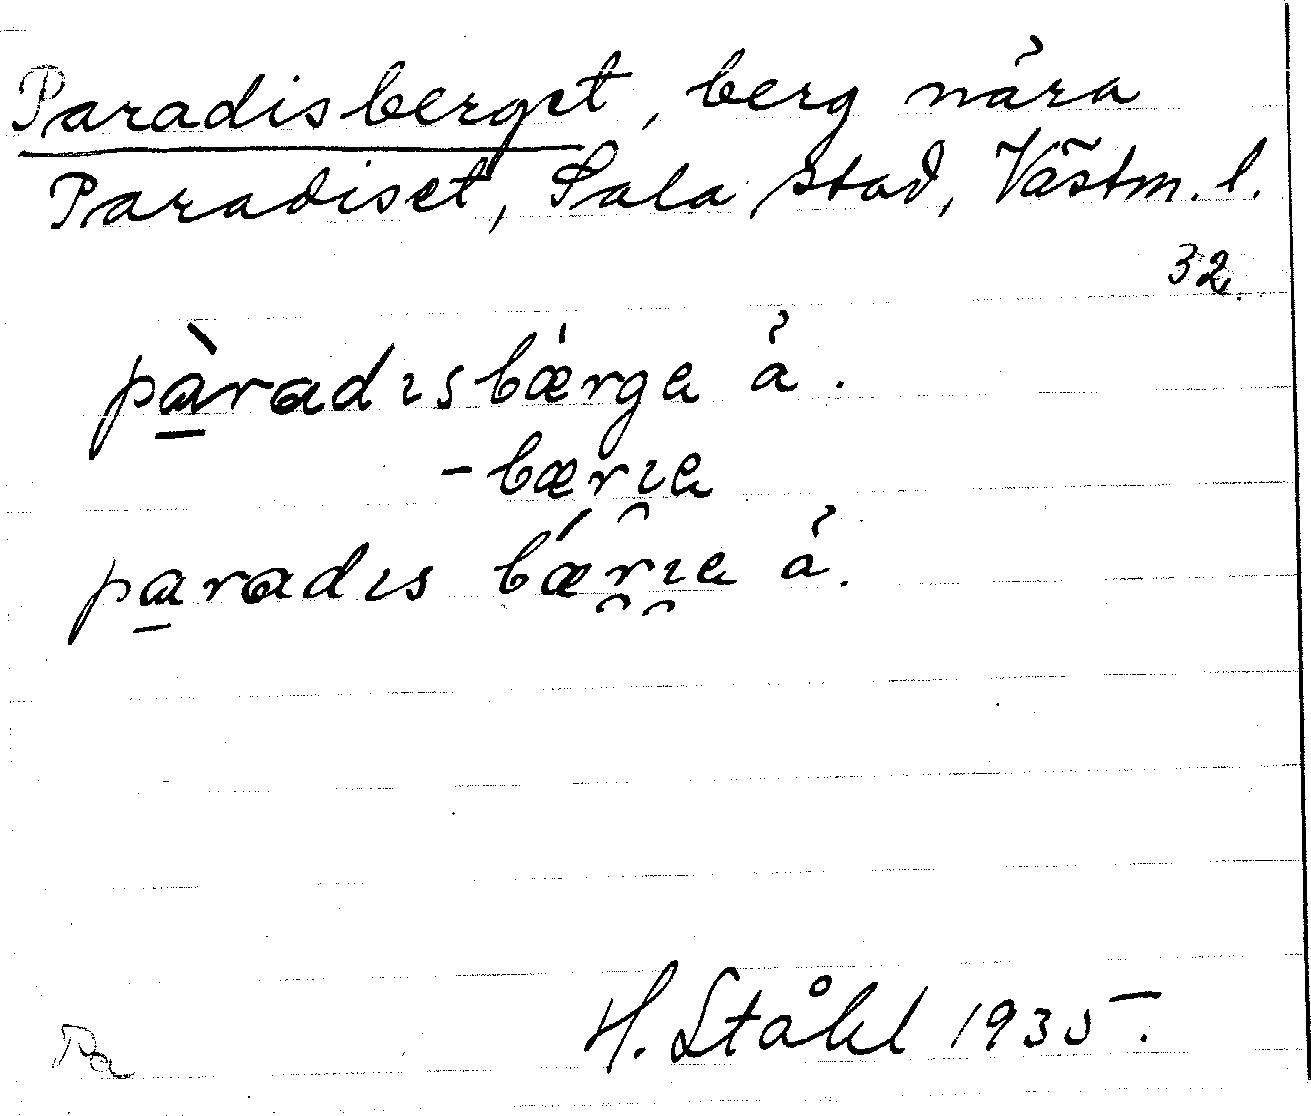 Paradisberget, berg nära
Paradiset, Sala stad, Västm. l.
32.
pàradısbǽrga å.
-bærı̯a
paradıs bǽr̯ı̯a å.
H. Ståhl 1935.
Pa